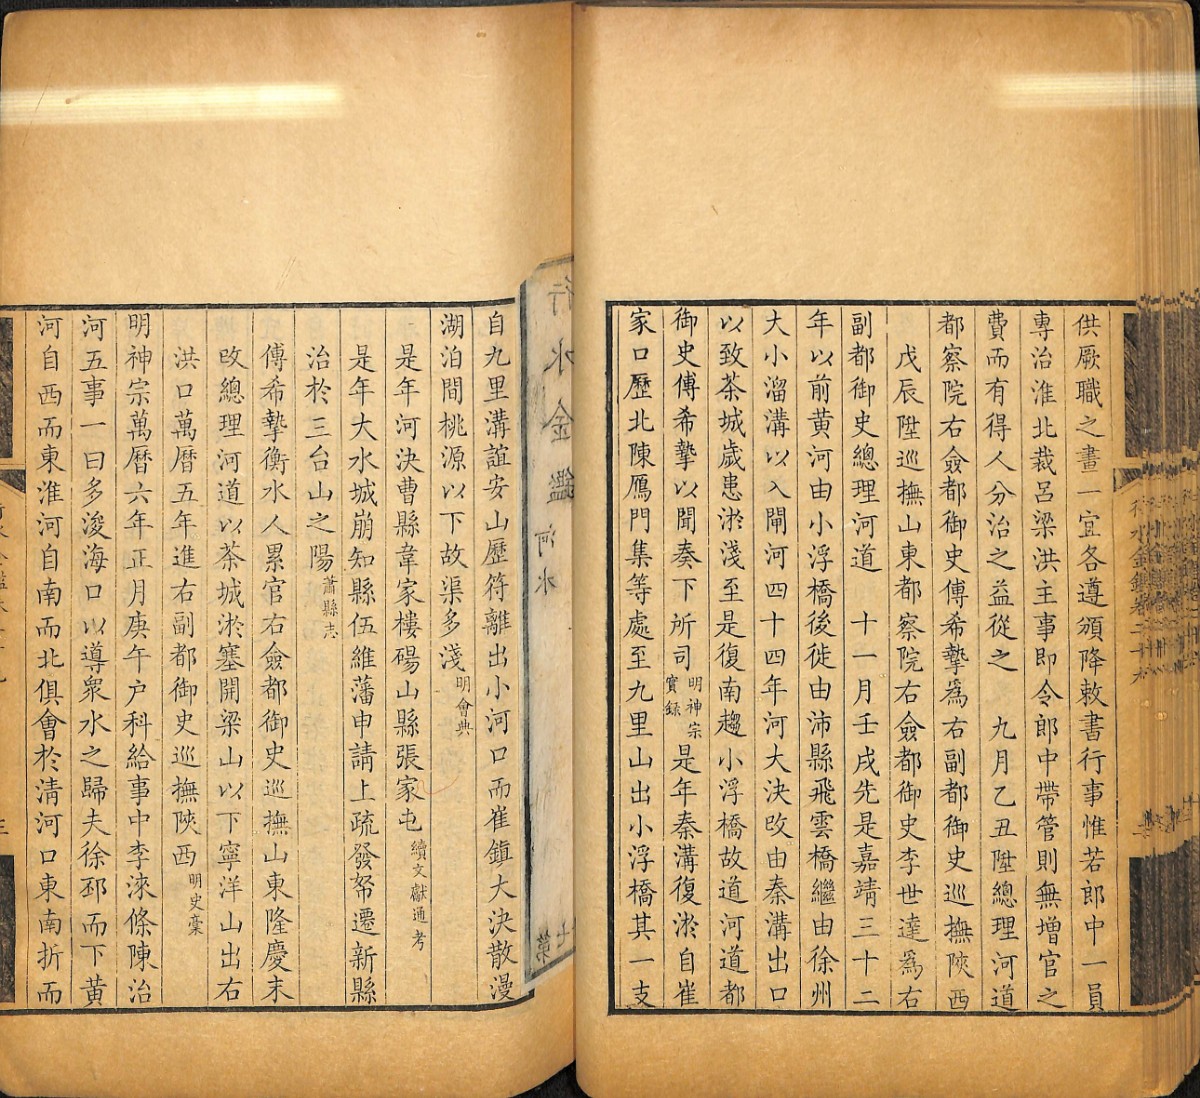 供厥職之畫一宜各遵頒降敕書行事惟若郎中一員
專治淮北裁呂梁洪主事即令郎中帶管則無增官之
費而有得人分治之益從之 九月乙丑陞總理河道
都察院右僉都御史傅希摯爲右副都御史巡撫陝西
戊辰陞巡撫山東都察院右僉都御史李世達爲右
副都御史總理河道 十一月壬戌先是嘉靖三十二
年以前黃河由小浮橋後徙由沛縣飛雲橋繼由徐州
大小溜溝以入閘河四十四年河大決改由秦溝出口
以致茶城歲患淤淺至是復南趨小浮橋故道河道都
御史傅希摯以聞奏下所司明神宗實録是年秦溝復淤自崔
家口歷北陳鴈門集等處至九里山出小浮橋其一支
行水金鑑 河水
自九里溝誼安山歷符離出小河口而崔鎮大決散漫
湖泊間桃源以下故渠多淺明會典
是年河決曹縣韋家樓碭山縣張家屯續文獻通考
是年大水城崩知縣伍維藩申請上疏發帑遷新縣
治於三台山之陽蕭縣志
傅希摯衡水人累官右僉都御史巡撫山東隆慶末
改總理河道以茶城淤塞開梁山以下寧洋山出右
洪口萬曆五年進右副都御史巡撫陝西明史稾
明神宗萬曆六年正月庚午户科給事中李淶條陳治
河五事一曰多浚海口以導衆水之歸夫徐邳而下黃
河自西而東淮河自南而北俱會於清河口東南折而